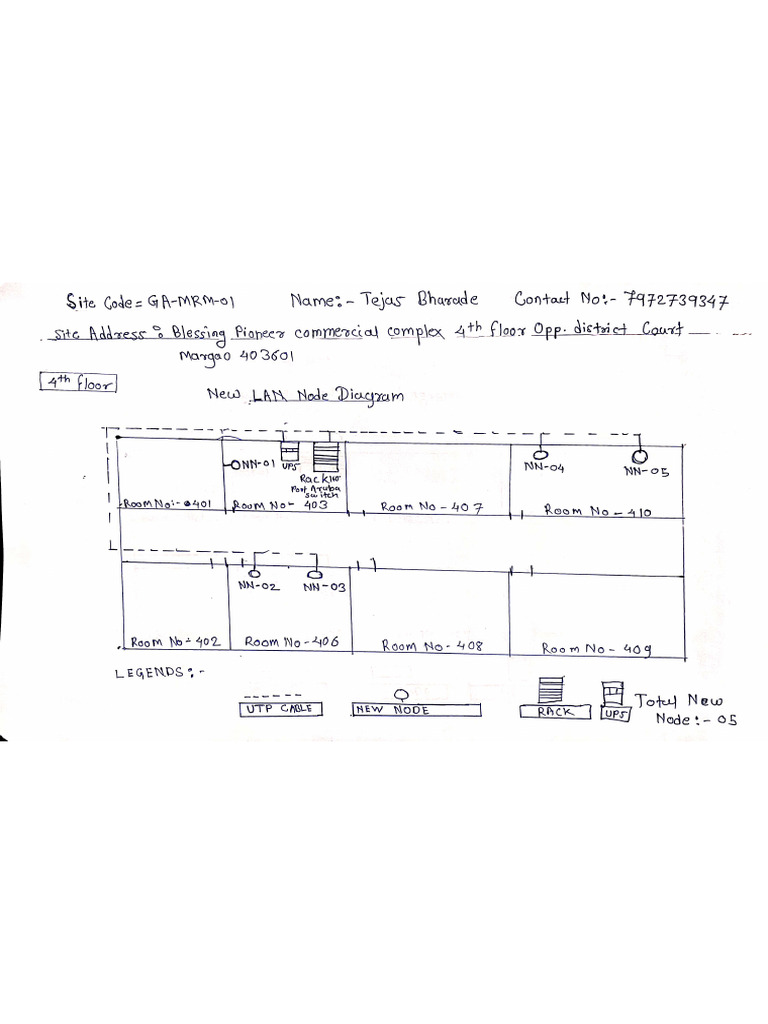 Site Code = GA-MRM-01 Name:- Tejas Bharade Contact No:- 7972739347
Site Address : Blessing Pioneer commercial complex 4th floor Opp. district Court
Margao 403601
4th floor
New LAN Node Diagram
NN-01 UPS Rack
Port Aruba
Switch
NN-04 NN-05
Room No:- 401 Room No- 403 Room No - 407 Room No - 410
NN-02 NN-03
Room No - 402 Room No - 406 Room No - 408 Room No - 409
LEGENDS:-
UTP CABLE NEW NODE RACK UPS
Total New
Node:- 05